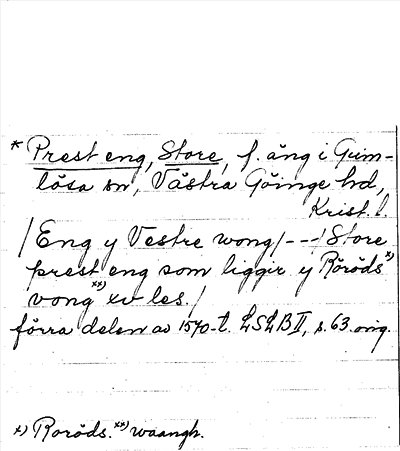 * Prest eng, Store, f. äng i Gum-
lösa sn, Västra Göinge hd,
Krist. l.
/Eng y Vestre wong/---/Store
prest eng som liggir y Röröds x)
vong xx) xv les./
förra delen av 1570-t. LSLB II, s. 63. orig.
x) Roröds. xx) waangh.